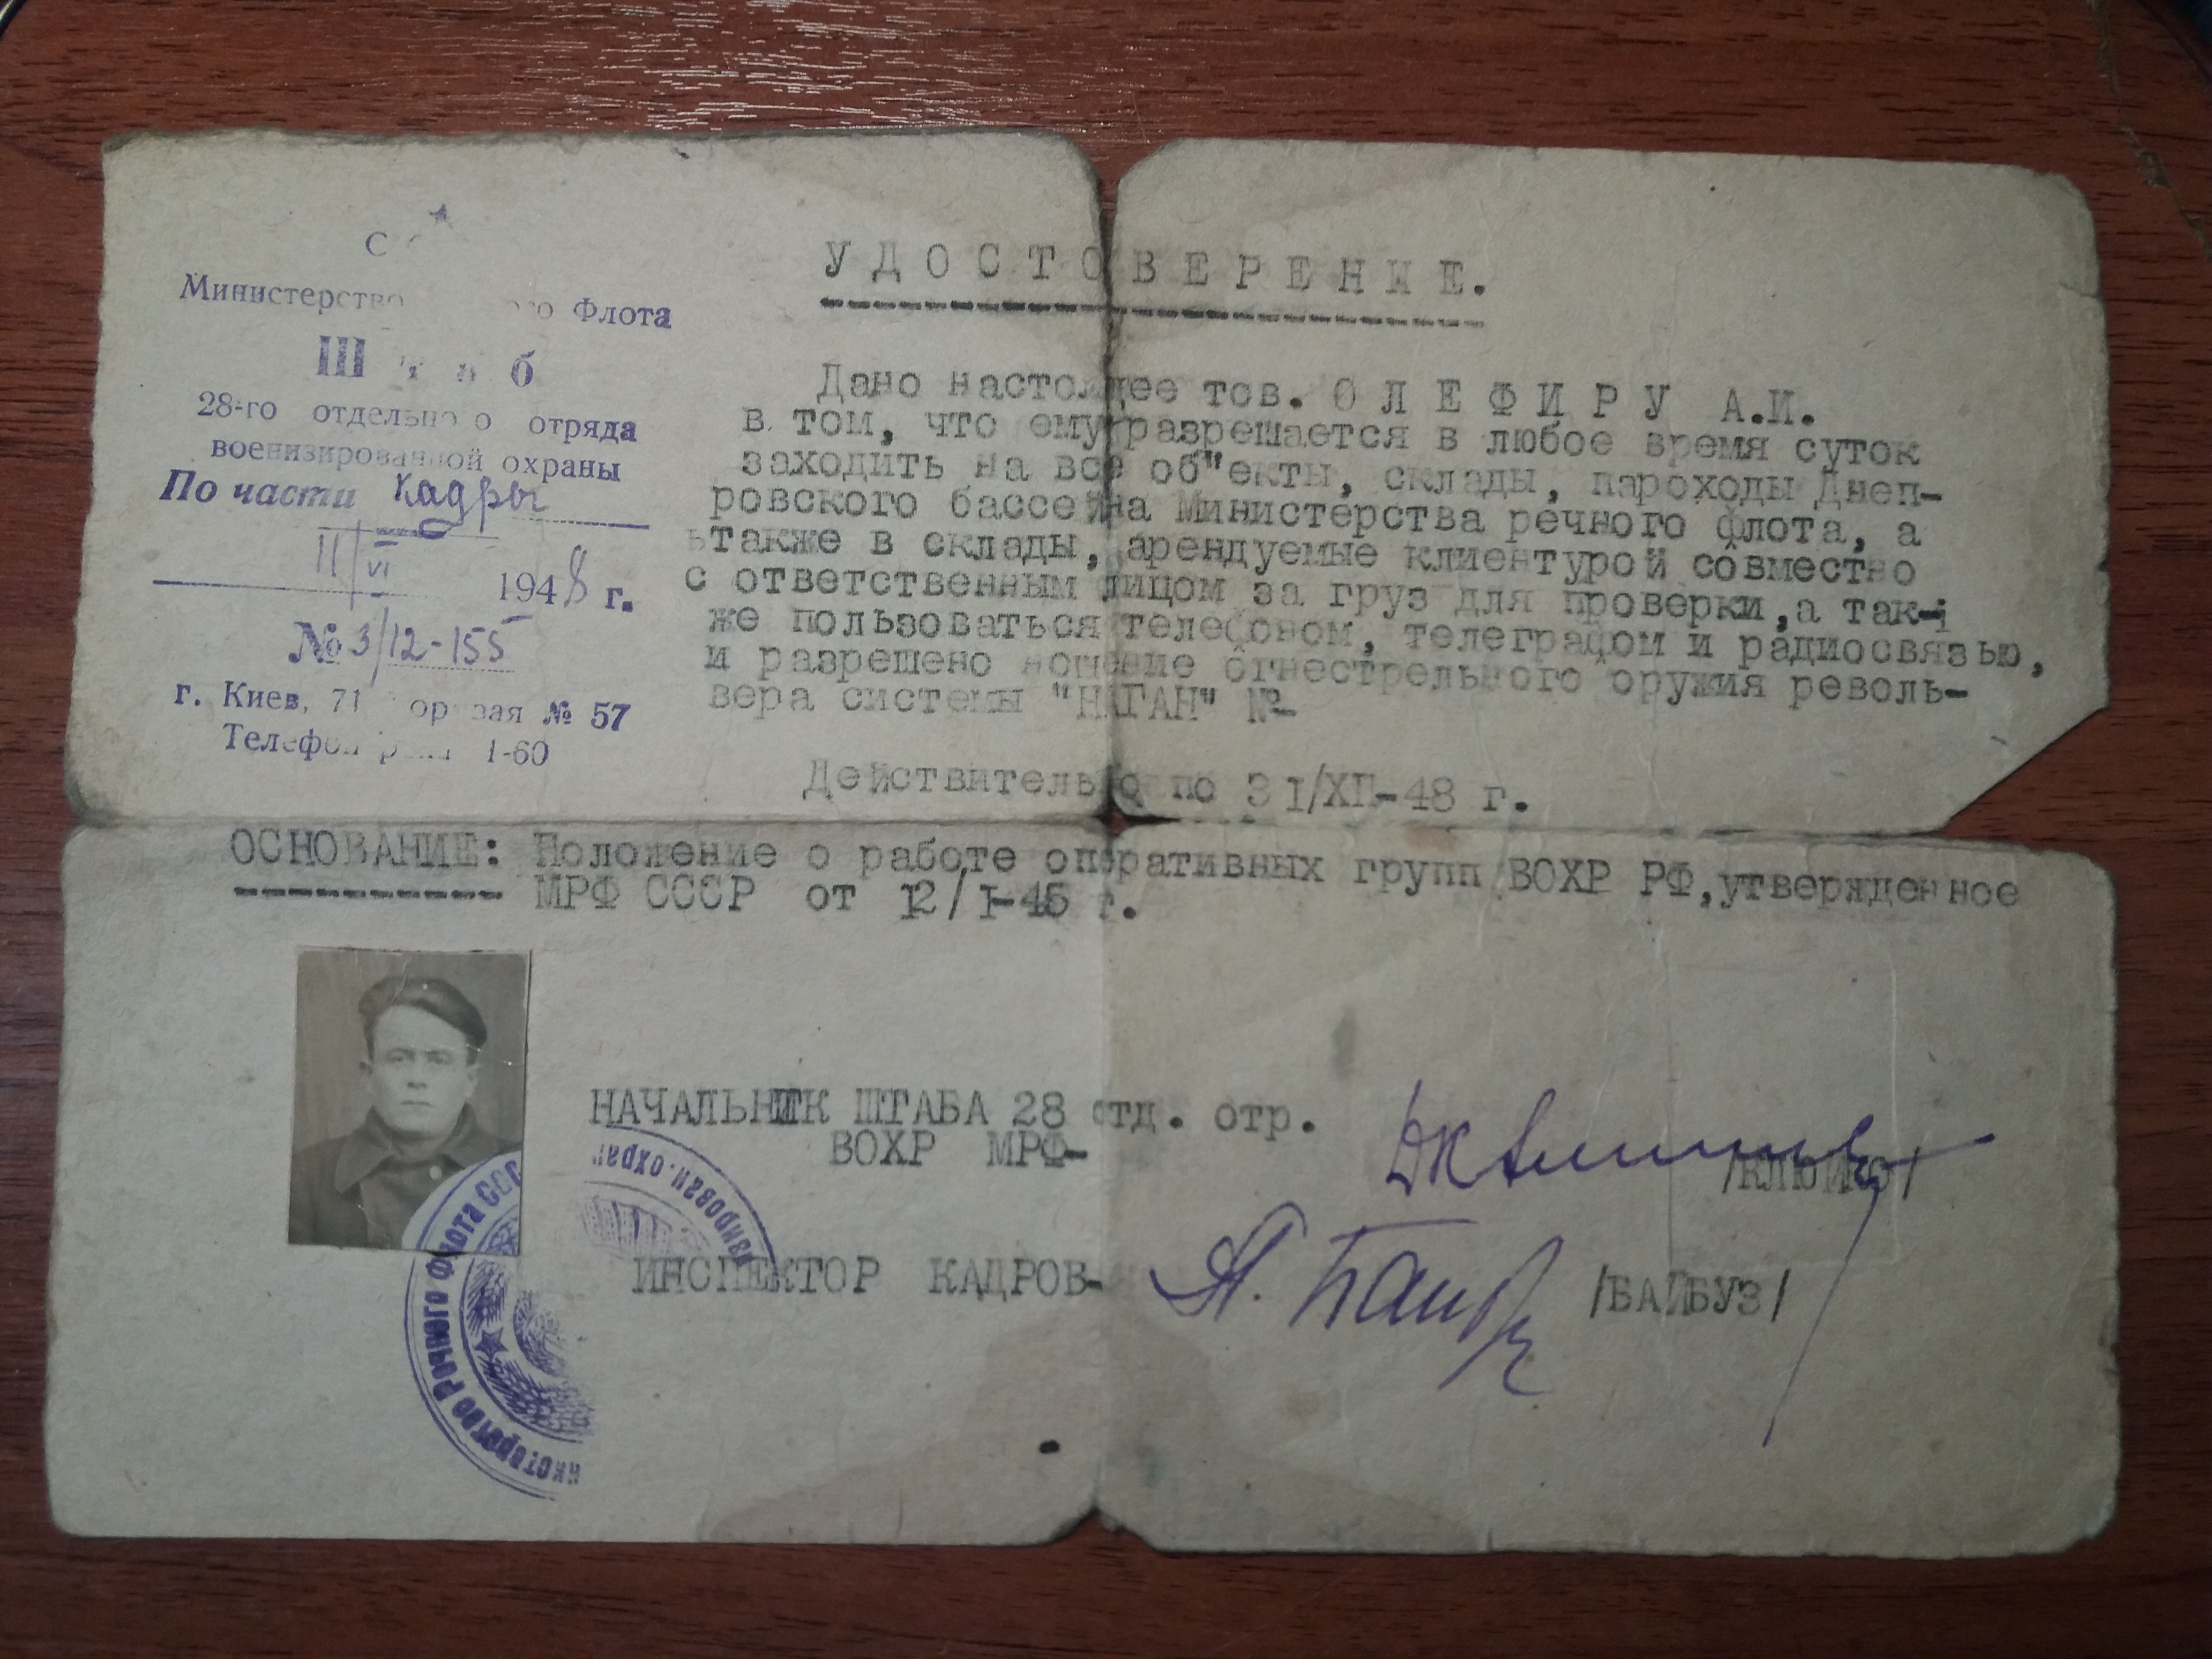 С
Министерство Флота
Штаб
28-го отдельного отряда
военизированной охраны
По части Кадры
11/VI 1948 г.
№ 3/12-155
г. Киев, № 57
Телефон 1-60
УДОСТОВЕРЕНИЕ.
Дано настоящее тов. ОЛЕФИРУ А.И.
в том, что ему разрешается в любое время суток
заходить на все об"екты, склады, пароходы Днеп-
ровского бассейна Министерства речного флота, а
также в склады, арендуемые клиентурой совместно
с ответственным лицом за груз для проверки,а так-
же пользоваться телефоном, телеграфом и радиосвязью,
и разрешено ношение огнестрельного оружия револь-
вера системы "НАГАН" №-
Действительно по 31/ХП-48 г.
ОСНОВАНИЕ: Положение о работе оперативных групп ВОХР РФ,утвержденное
МРФ СССР от 12/I-46 г.
НАЧАЛЬНИК ШТАБА 28 отд. отр.
ВОХР МРФ-
/КЛЮЙКО/
ИНСПЕКТОР КАДРОВ-
/БАЙБУЗ/
Речного Флота ССС
охран